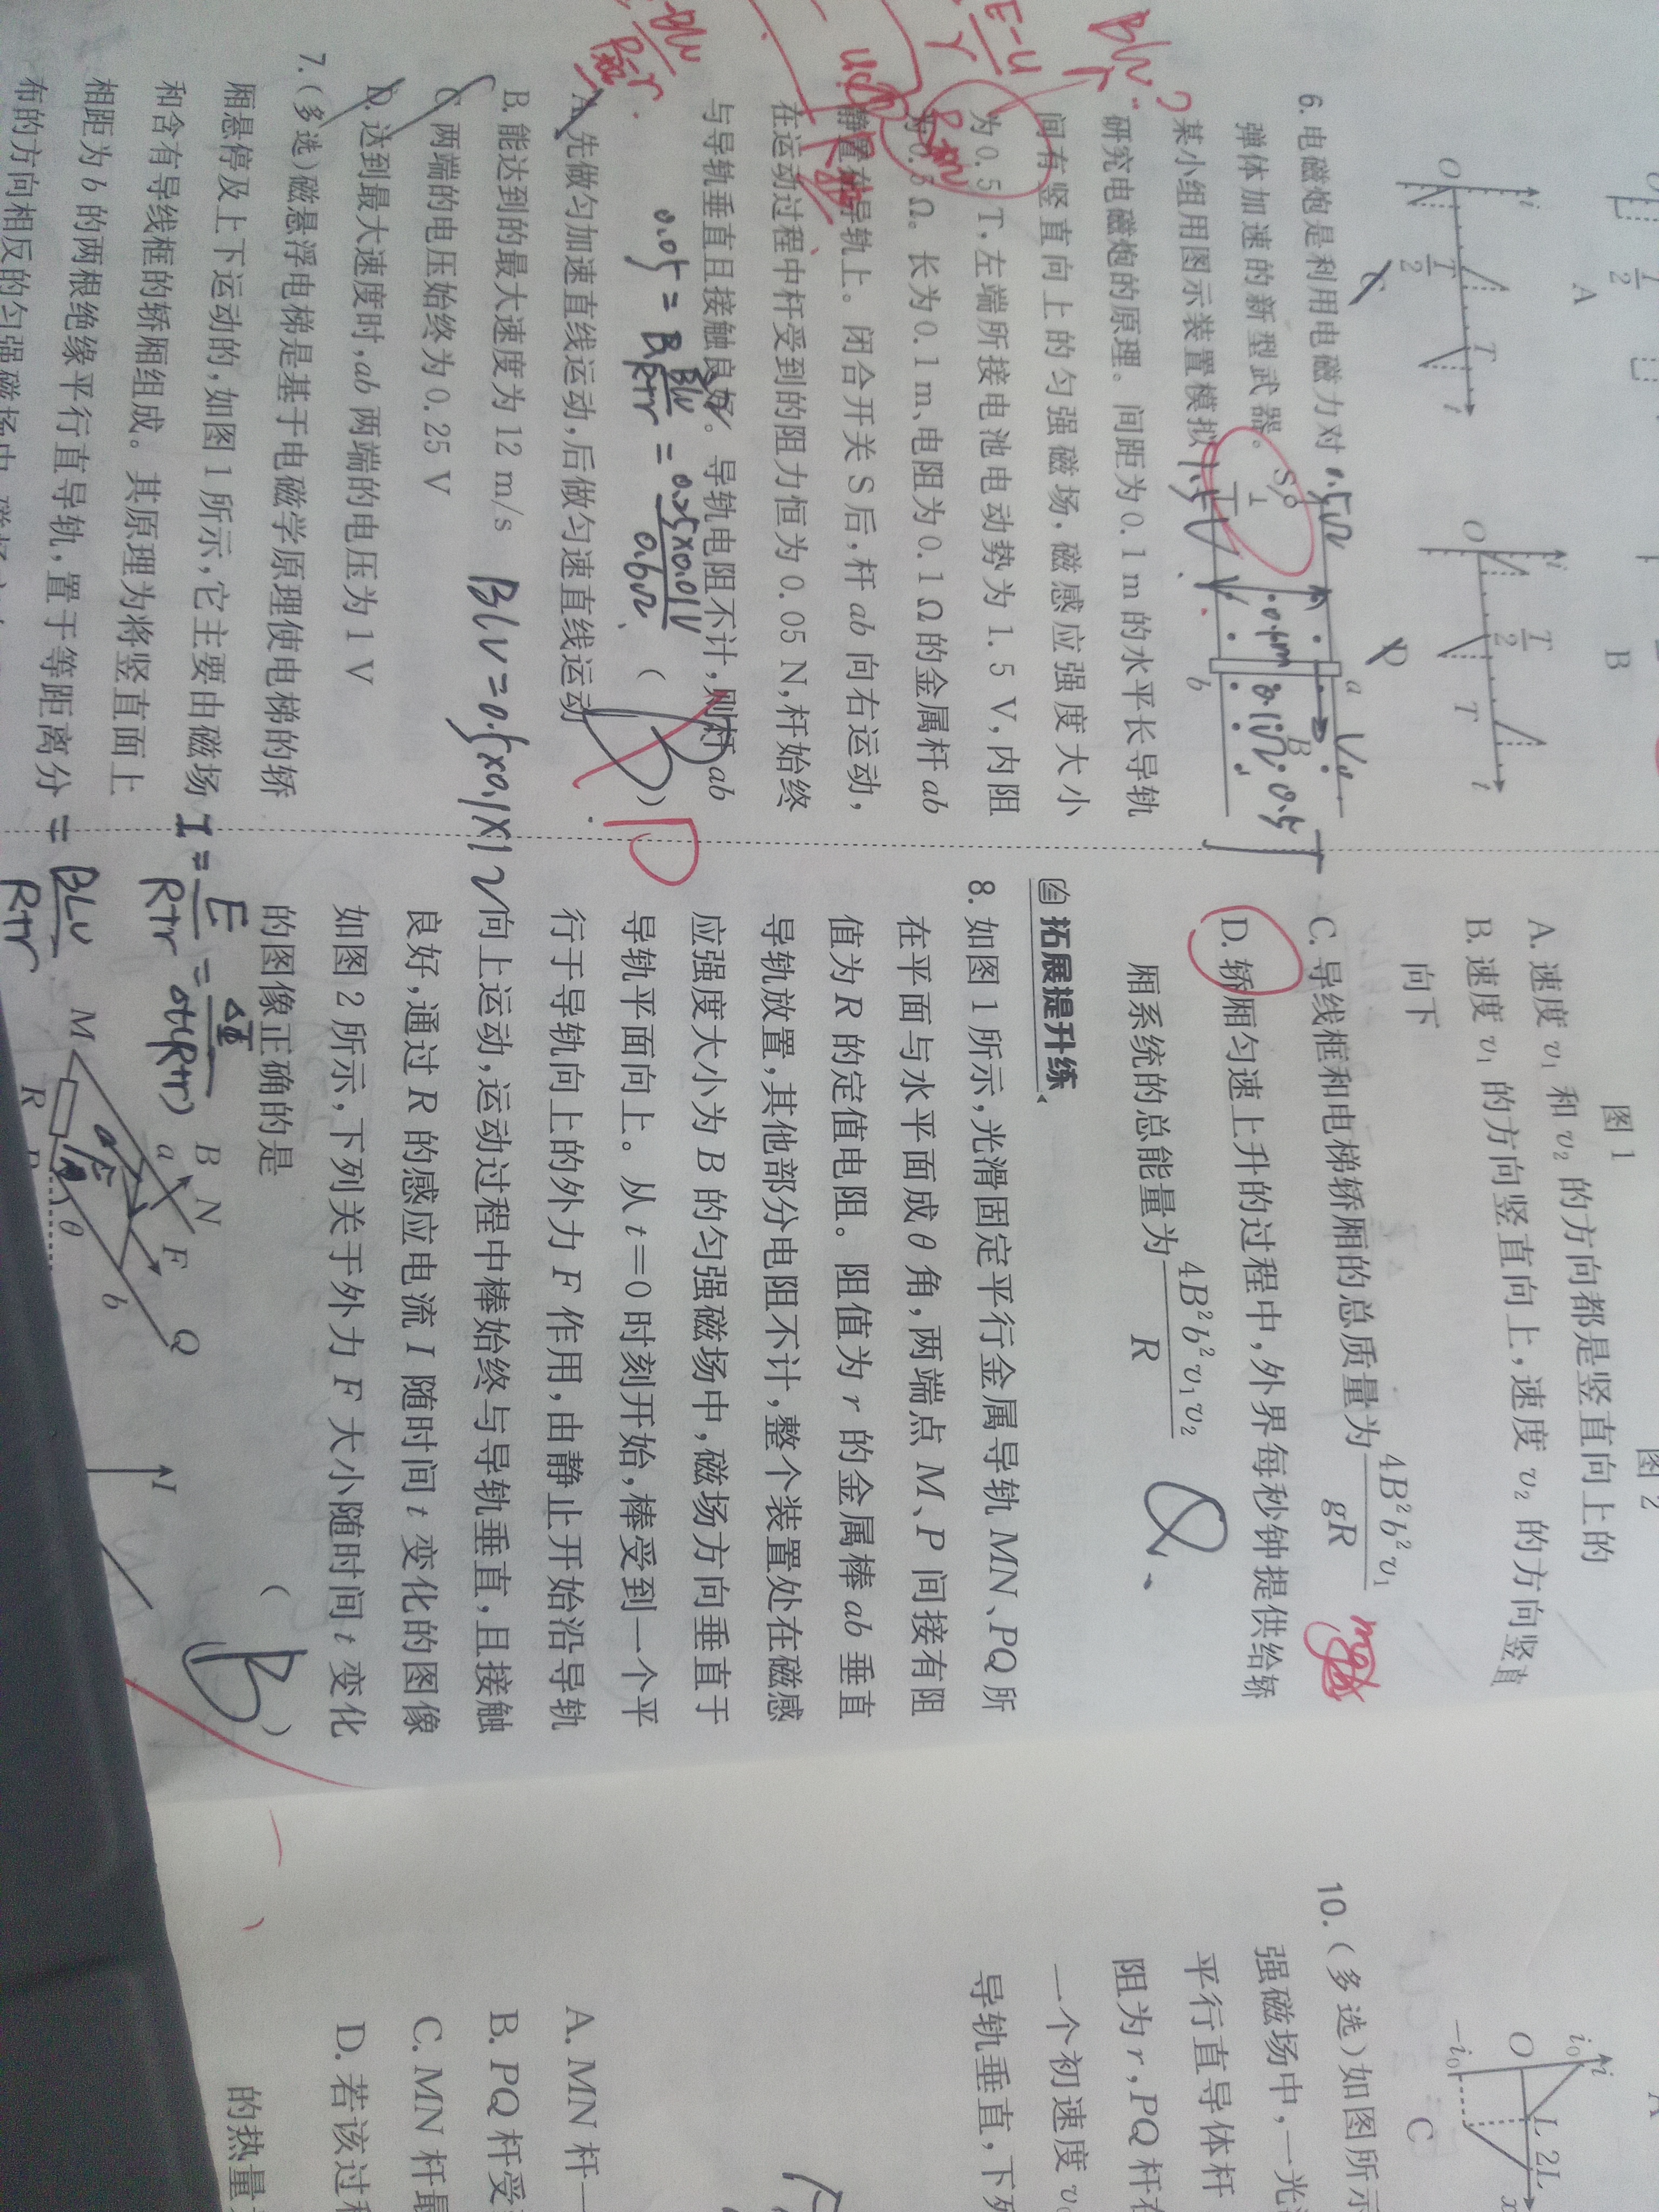 6. 电磁炮是利用电磁力对
弹体加速的新型武器。
某小组用图示装置模拟
研究电磁炮的原理。间距为0.1 m的水平长导轨
间有竖直向上的匀强磁场,磁感应强度大小
为0.5 T,左端所接电池电动势为1.5 V,内阻
为0.5 Ω。长为0.1 m、电阻为0.1 Ω的金属杆ab
静置在导轨上。闭合开关S后,杆ab向右运动,
在运动过程中杆受到的阻力恒为0.05 N,杆始终
与导轨垂直且接触良好。导轨电阻不计,则杆ab
( )
A. 先做匀加速直线运动,后做匀速直线运动
B. 能达到的最大速度为12 m/s
C. 两端的电压始终为0.25 V
D. 达到最大速度时,ab两端的电压为1 V
7. (多选)磁悬浮电梯是基于电磁学原理使电梯的轿
厢悬停及上下运动的,如图1所示,它主要由磁场
和含有导线框的轿厢组成。其原理为将竖直面上
相距为b的两根绝缘平行直导轨,置于等距离分
布的方向相反的匀强磁场中
S
a
b
B
O
i
T/2
T
t
A
B
C
D
0.5Ω
1.5V
0.1m
0.1Ω
0.5T
BLV=0.5×0.1×12
I=E/(R+r)=ΔΦ/Δt(R+r)
=BLv/(R+r)
图1
图2
A. 速度v₁和v₂的方向都是竖直向上的
B. 速度v₁的方向竖直向上,速度v₂的方向竖直
向下
C. 导线框和电梯轿厢的总质量为4B²b²v₁/gR
D. 轿厢匀速上升的过程中,外界每秒钟提供给轿
厢系统的总能量为4B²b²v₁v₂/R
拓展提升练
8. 如图1所示,光滑固定平行金属导轨MN、PQ所
在平面与水平面成θ角,两端点M、P间接有阻
值为R的定值电阻。阻值为r的金属棒ab垂直
导轨放置,其他部分电阻不计,整个装置处在磁感
应强度大小为B的匀强磁场中,磁场方向垂直于
导轨平面向上。从t=0时刻开始,棒受到一个平
行于导轨向上的外力F作用,由静止开始沿导轨
向上运动,运动过程中棒始终与导轨垂直,且接触
良好,通过R的感应电流I随时间t变化的图像
如图2所示,下列关于外力F大小随时间t变化
的图像正确的是
( B )
M
R
B
N
a
F
θ
b
Q
I
i
i₀
O
-i₀
L
2L
x
C
10. (多选)如图所示
强磁场中,一光
平行直导体杆
阻为r,PQ杆在
一个初速度v
导轨垂直,下
A. MN杆
B. PQ杆受
C. MN杆最
D. 若该过
的热量